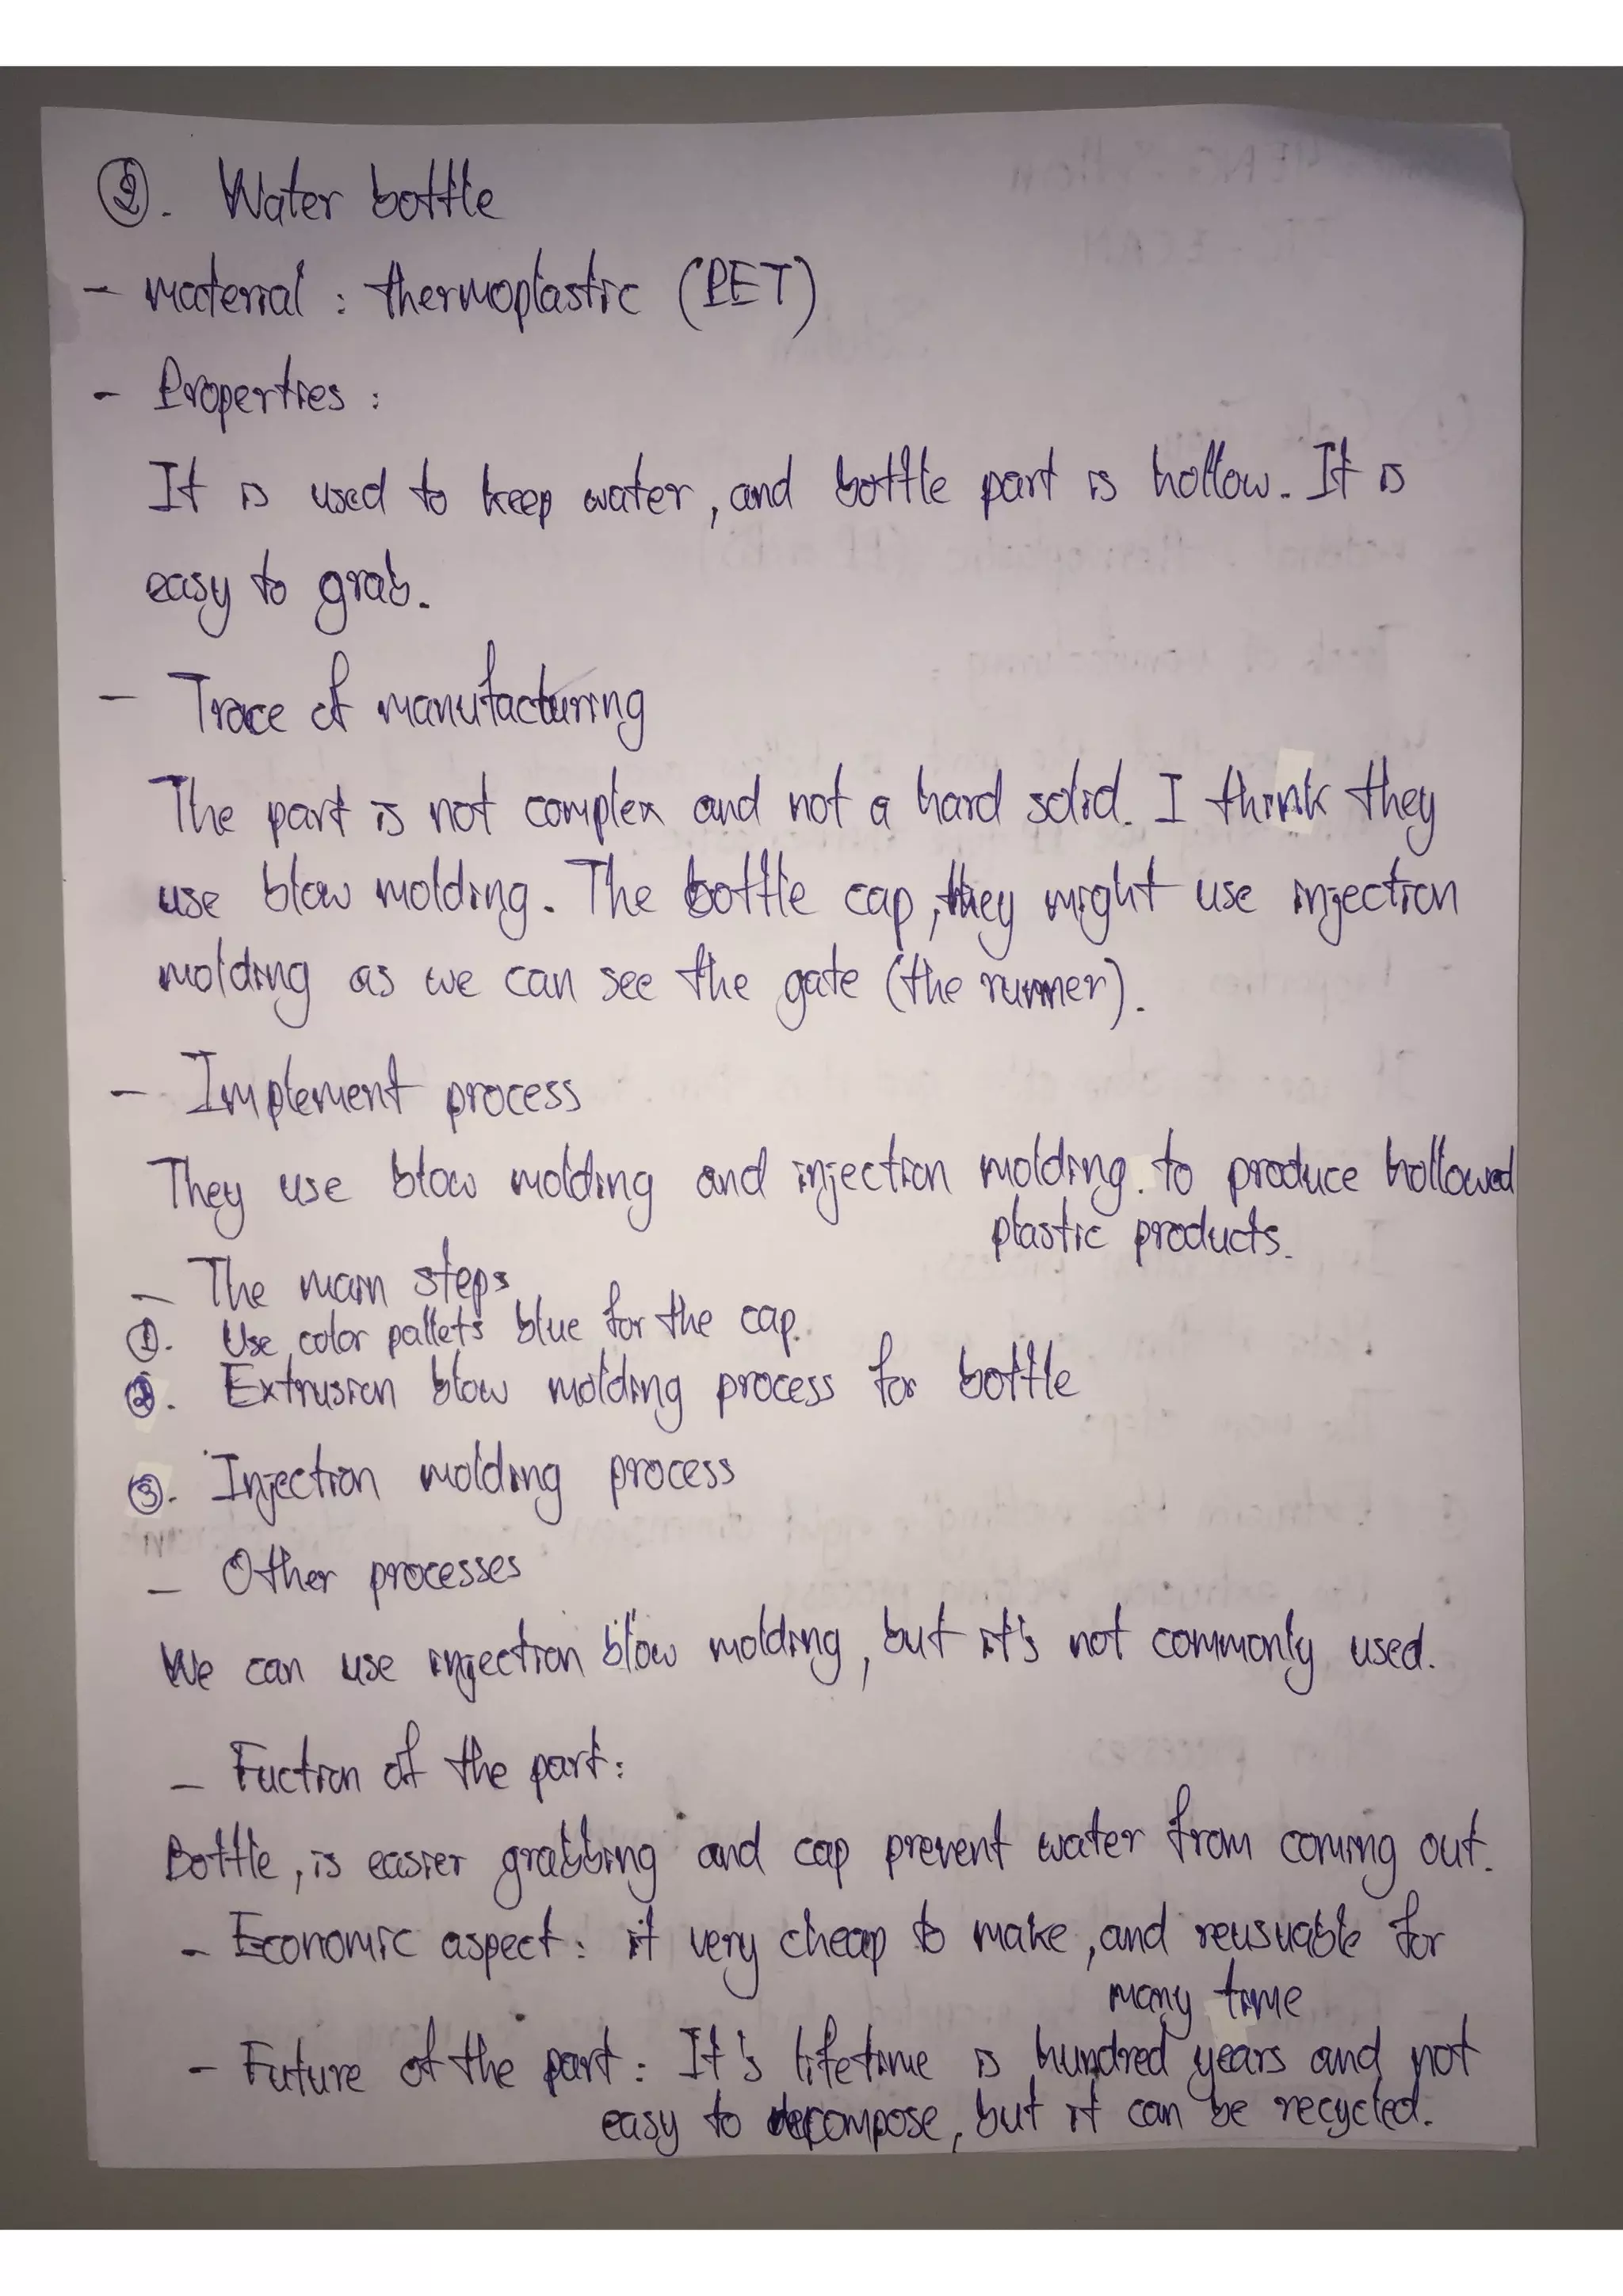 ②. Water bottle
- material : thermoplastic (PET)
- Properties :
It is used to keep water, and bottle part is hollow. It is
easy to grab.
- Trace of manufacturing
The part is not complex and not a hard solid. I think they
use blow molding. The bottle cap, they might use injection
molding as we can see the gate (the runner).
- Implement process
They use blow molding and injection molding. to produce hollowed
plastic products.
- The main steps
①. Use color pallets blue for the cap.
②. Extrusion blow molding process for bottle
③. Injection molding process
- Other processes
We can use injection blow molding, but it's not commonly used.
- Fuction of the part:
Bottle, is easier grabbing and cap prevent water from coming out.
- Economic aspect: it very cheap to make, and reusuable for
many time
- Future of the part: It's lifetime is hundred years and not
easy to decompose, but it can be recycled.